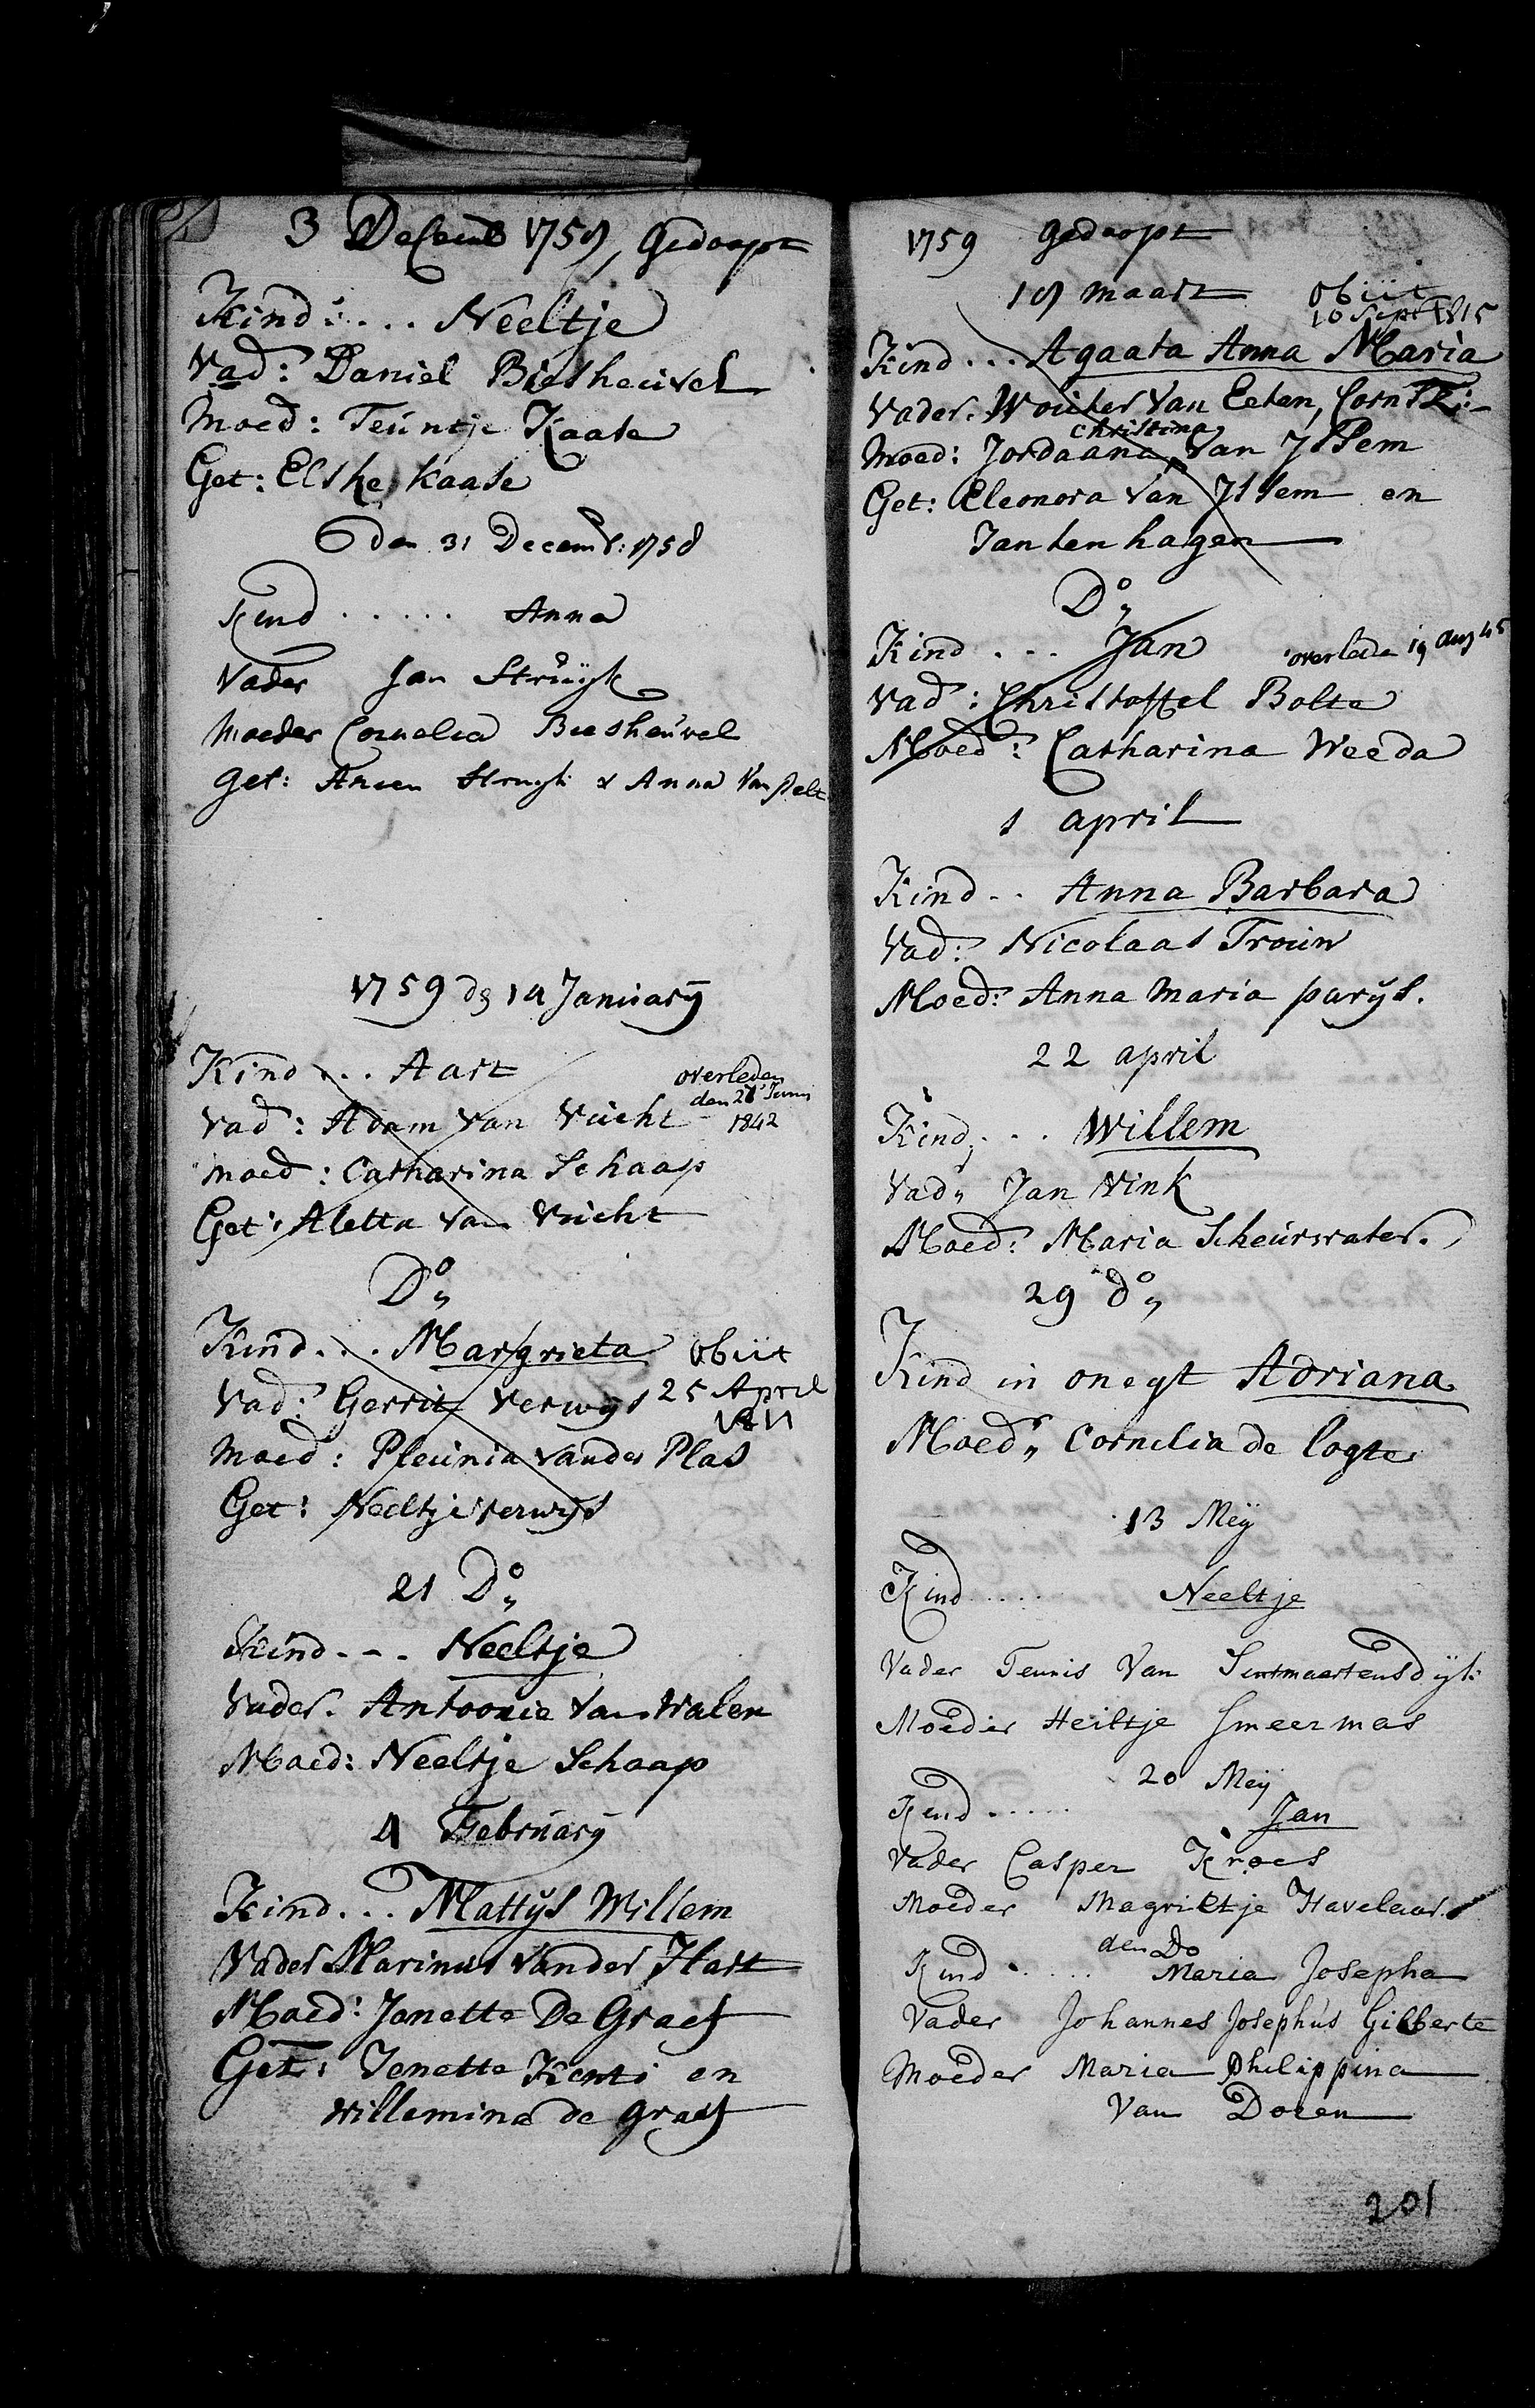 3 Decemb 1758, Gedoopt
Kind: ... Neeltje
Vad: Daniel Biesheuvel
Moed: Teuntje Kaase
Get: Elske Kaase
den 31 Decemb: 1758
Kind ..... Anna
Vader Jan Struijk
Moeder Cornelia Biesheuvel
Get: Struijk & Anna Van Pelt
1759 dg 14 January
Kind ... Aart
overleden
den 21 Junij
1842
Vad: Adam Van Vucht
Moed: Catharina Schaap
Get: Aletta Van Vucht
Do,,
Kind ... Margrieta obiit
25 April
1811
Vad: Gerrit Verwijs
Moed: Pleunia Vander Plas
Get: Neeltje Verwijs
21 Do,,
Kind ... Neeltje
Vader. Antoonie Van Walen
Moed: Neeltje Schaap
4 February
Kind ... Mattijs Willem
Vader Marinus Vander Hart
Moed: Janette De Graef
Get: Jenette en
Willemina de Graef
1759 Gedoopt
19 maart
obiit
10 Sept 1815
Kind ... Agaata Anna Maria
Vader. Wouter Van Eeten, Corn
Christina
Moed: Jordaana Van Ilsem
Get: Eleonora Van Ilsem en
Jan ten hagen
Do,,
Kind ... Jan overlede 19 Aug 45
Vad: Christoffel Bolte
Moed: Catharina Weeda
1 april
Kind .. Anna Barbara
Vad: Nicolaas Trouw
Moed: Anna Maria parijs.
22 april
Kind ... Willem
Vad,, Jan Vink
Moed: Maria Scheurwater.
29 do,,
Kind in onegt Adriana
Moed,, Cornelia de Logte
13 Meij
Kind ..... Neeltje
Vader Teunis Van Sintmaertensdijk
Moeder Heiltje Smeermas
20 Meij
Kind ..... Jan
Vader Casper Kroes
Moeder Magrietje Havelaar
den Do
Kind ..... Maria Josepha
Vader Johannes Josephus Gilberte
Moeder Maria Philippina
Van Doren
201